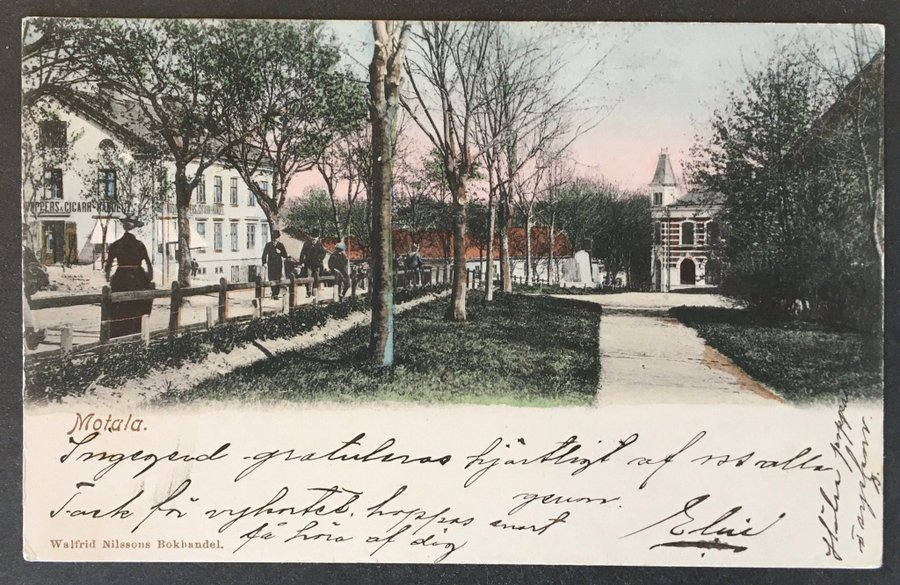 PPERS & CIGARR-HANDEL
Motala.
Ingegerd gratuleras hjärtligt af oss alla
genom
Tack för vykortet, hoppas snart
få höra af dig
Elin
Walfrid Nilssons Bokhandel.